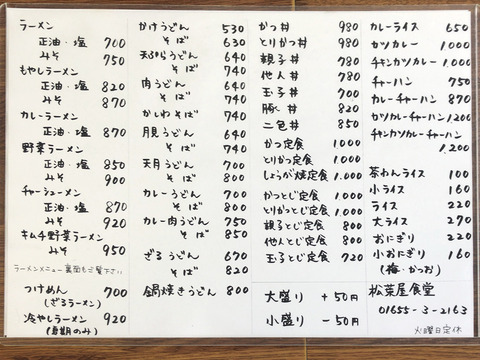 ラーメン
正油・塩 700
みそ 750
もやしラーメン
正油・塩 820
みそ 870
カレーラーメン
正油・塩 870
野菜ラーメン
正油・塩 850
みそ 900
チャーシューメン
正油・塩 870
みそ 920
キムチ野菜ラーメン
みそ 950
ラーメンメニュー裏面もご覧下さい。
つけめん 700
(ざるラーメン)
冷やしラーメン 920
(夏期のみ)
かけうどん 530
そば 630
天ぷらうどん 640
そば 740
肉うどん 640
そば 740
かしわそば 740
月見うどん 640
そば 740
天月うどん 700
そば 800
カレーうどん 700
そば 800
カレー肉うどん 750
そば 850
ざるうどん 670
そば 820
鍋焼きうどん 800
かつ丼 980
とりかつ丼 980
親子丼 780
他人丼 780
玉子丼 700
豚丼 820
二色丼 850
かつ定食 1.000
とりかつ定食 1.000
しょうが焼定食 1.000
かつとじ定食 1.000
とりかつとじ定食 1.000
親子とじ定食 800
他人とじ定食 800
玉子とじ定食 720
大盛り +50円
小盛り -50円
カレーライス 650
カツカレー 1.000
チキンカツカレー 1.000
チャーハン 750
カレーチャーハン 870
カツカレーチャーハン 1200
チキンカツカレーチャーハン
1.200
茶わんライス 100
小ライス 160
ライス 220
大ライス 270
おにぎり 220
小おにぎり 160
(梅・かつお)
松葉屋食堂
01655-3-2163
火曜日定休